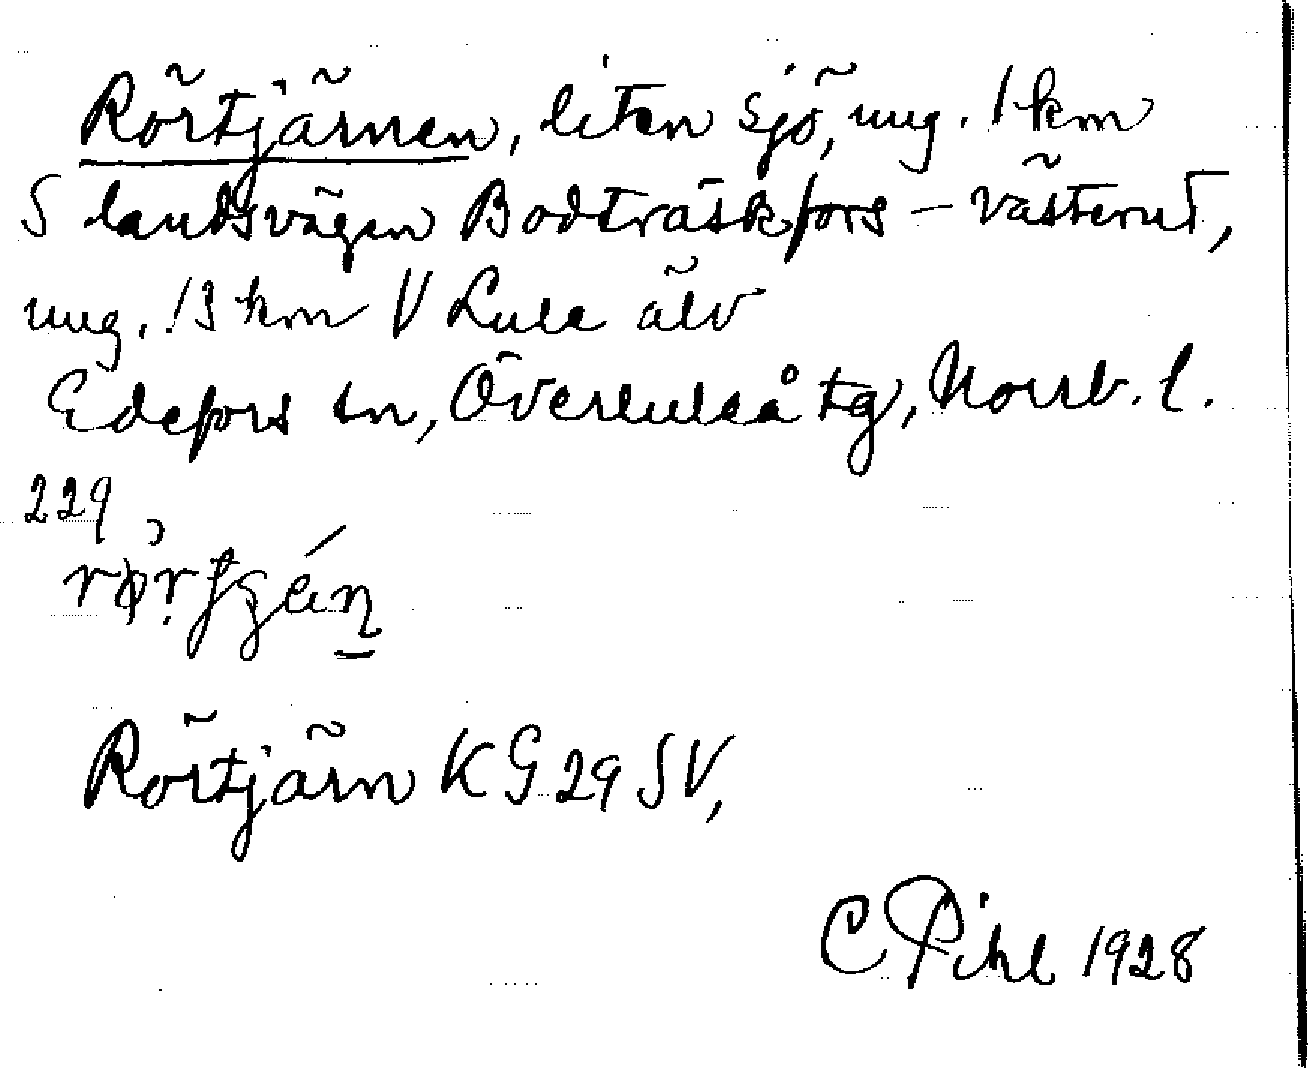 Rörtjärnen, liten sjö, ung. 1 km
S landsvägen Bodträskfors – Västerut,
ung. 13 km V Lule älv
Edefors sn, Överluleå tg, Norrb. l.
229
Rörtjärn KG 29 SV,
C Pihl 1928